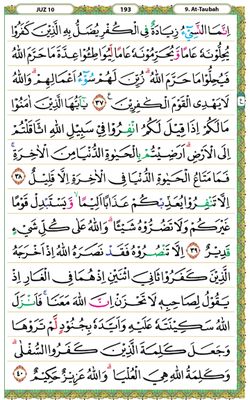 JUZ 10 193 9. At-Taubah
اِنَّمَا النَّسِيْۤءُ زِيَادَةٌ فِى الْكُفْرِ يُضَلُّ بِهِ الَّذِيْنَ كَفَرُوْا
يُحِلُّوْنَهٗ عَامًا وَّيُحَرِّمُوْنَهٗ عَامًا لِّيُوَاطِـُٔوْا عِدَّةَ مَا حَرَّمَ اللّٰهُ
فَيُحِلُّوْا مَا حَرَّمَ اللّٰهُ ۗ زُيِّنَ لَهُمْ سُوْۤءُ اَعْمَالِهِمْ ۗ وَاللّٰهُ
لَا يَهْدِى الْقَوْمَ الْكٰفِرِيْنَ ۝٣٧ يٰٓاَيُّهَا الَّذِيْنَ اٰمَنُوْا
مَا لَكُمْ اِذَا قِيْلَ لَكُمُ انْفِرُوْا فِيْ سَبِيْلِ اللّٰهِ اثَّاقَلْتُمْ
اِلَى الْاَرْضِ ۗ اَرَضِيْتُمْ بِالْحَيٰوةِ الدُّنْيَا مِنَ الْاٰخِرَةِ ۚ
فَمَا مَتَاعُ الْحَيٰوةِ الدُّنْيَا فِى الْاٰخِرَةِ اِلَّا قَلِيْلٌ
۝٣٨ اِلَّا تَنْفِرُوْا يُعَذِّبْكُمْ عَذَابًا اَلِيْمًا ۙ وَّيَسْتَبْدِلْ قَوْمًا
غَيْرَكُمْ وَلَا تَضُرُّوْهُ شَيْـًٔا ۗ وَاللّٰهُ عَلٰى كُلِّ شَيْءٍ
قَدِيْرٌ ۝٣٩ اِلَّا تَنْصُرُوْهُ فَقَدْ نَصَرَهُ اللّٰهُ اِذْ اَخْرَجَهُ
الَّذِيْنَ كَفَرُوْا ثَانِيَ اثْنَيْنِ اِذْ هُمَا فِى الْغَارِ اِذْ
يَقُوْلُ لِصَاحِبِهٖ لَا تَحْزَنْ اِنَّ اللّٰهَ مَعَنَا ۚ فَاَنْزَلَ
اللّٰهُ سَكِيْنَتَهٗ عَلَيْهِ وَاَيَّدَهٗ بِجُنُوْدٍ لَّمْ تَرَوْهَا
وَجَعَلَ كَلِمَةَ الَّذِيْنَ كَفَرُوا السُّفْلٰى ۗ
وَكَلِمَةُ اللّٰهِ هِيَ الْعُلْيَا ۗ وَاللّٰهُ عَزِيْزٌ حَكِيْمٌ ۝٤٠